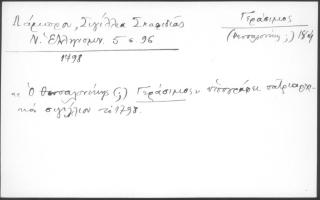 Μάρμαρου, Σιγίλλια Σκαφιδιᾶς
Ν. Ἑλληνομν. 5 σ. 96
1798
Γεράσιμος
(Θεσσαλονίκης ;)
"Ὁ Θεσσαλονίκης (;) Γεράσιμος" ὑπογράφει πατριαρχι-
κόν σιγίλλιον τῷ 1798.